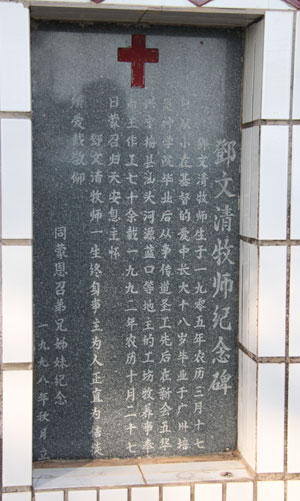 鄧文清牧师纪念碑
鄧文清牧师生于一九零五年农历三月十七
日从小在基督的爱中长大十八岁毕业于广州培
灵神学院毕业后从事传道圣工先后在新会五华
兴宁梅县汕头河源蓝口等地主的工坊牧养事奉
为主作工七十余载一九九二年农历十月二十七
日蒙召归天安息主怀
鄧文清牧师一生终身事主为人正直为信徒
所爱戴敬仰
同蒙恩召弟兄姊妹纪念
一九九八年秋月立